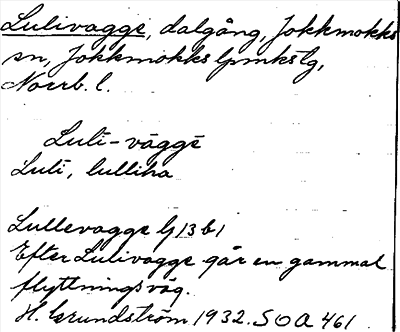 Lulivagge, dalgång, Jokkmokks
sn, Jokkmokks lpmkstg,
Norrb. l.
Luli-vàggē
Luli, lulliha
Lullevagge lj 13 b 1
Efter Lulivagge går en gammal
flyttningsväg.
H. Grundström 1932. SOA 461